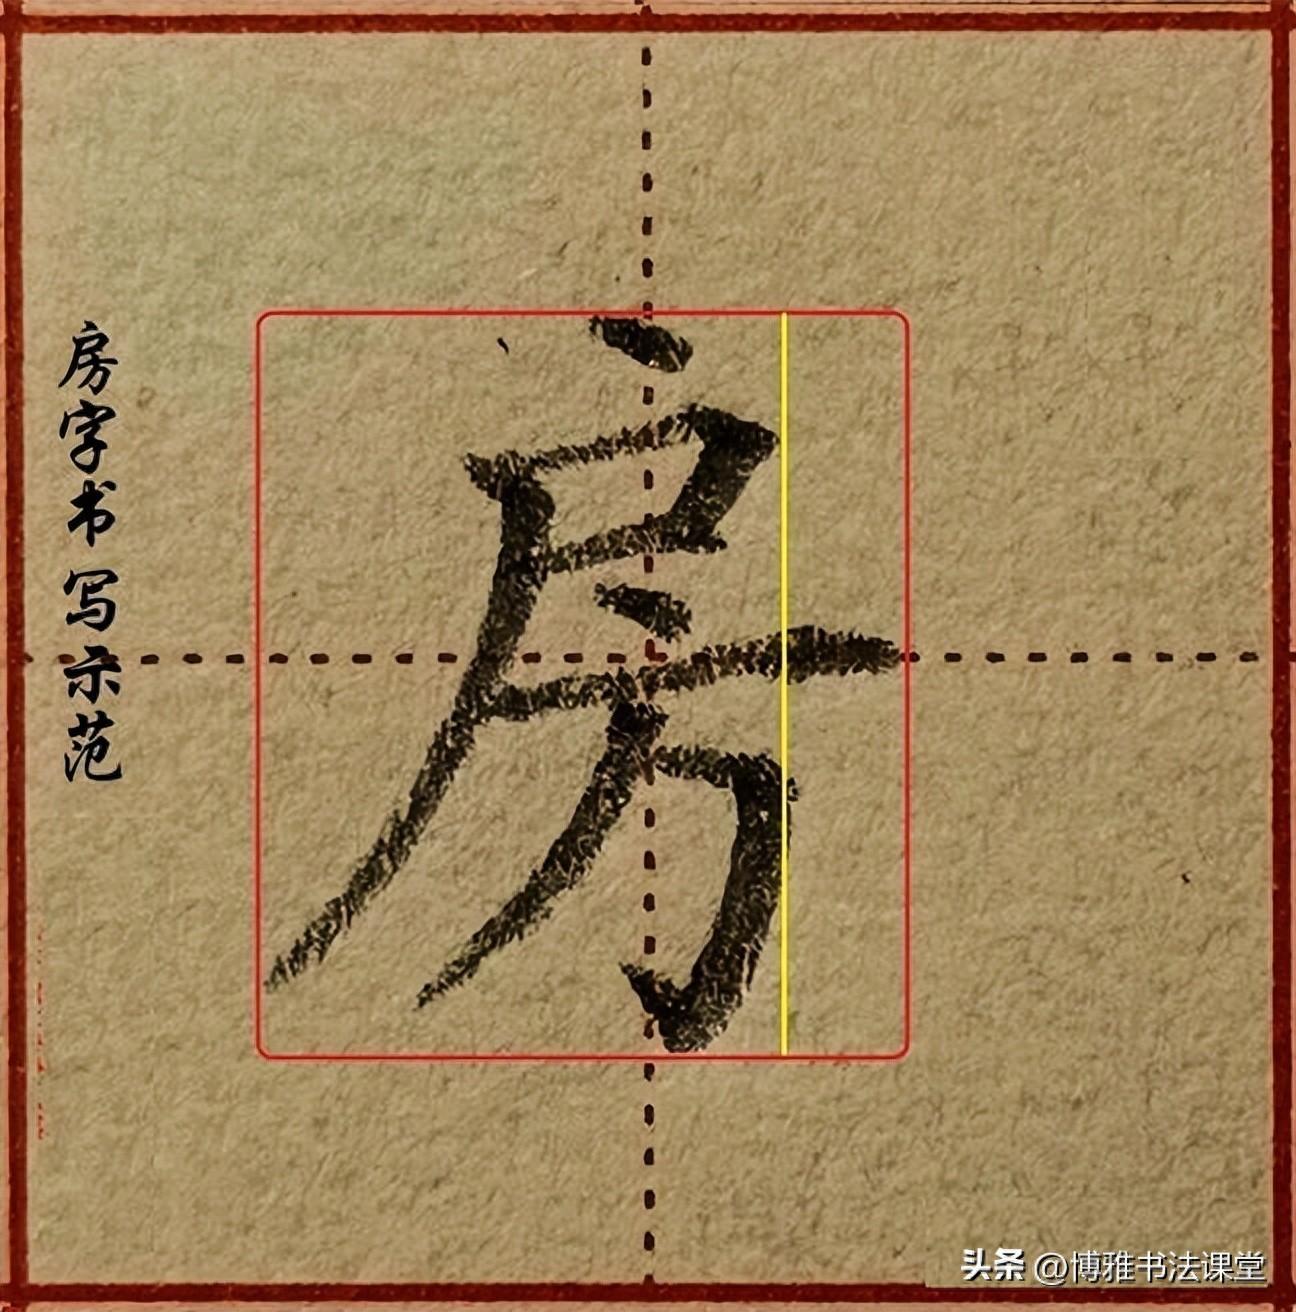 房字书写示范
房
头条 @博雅书法课堂